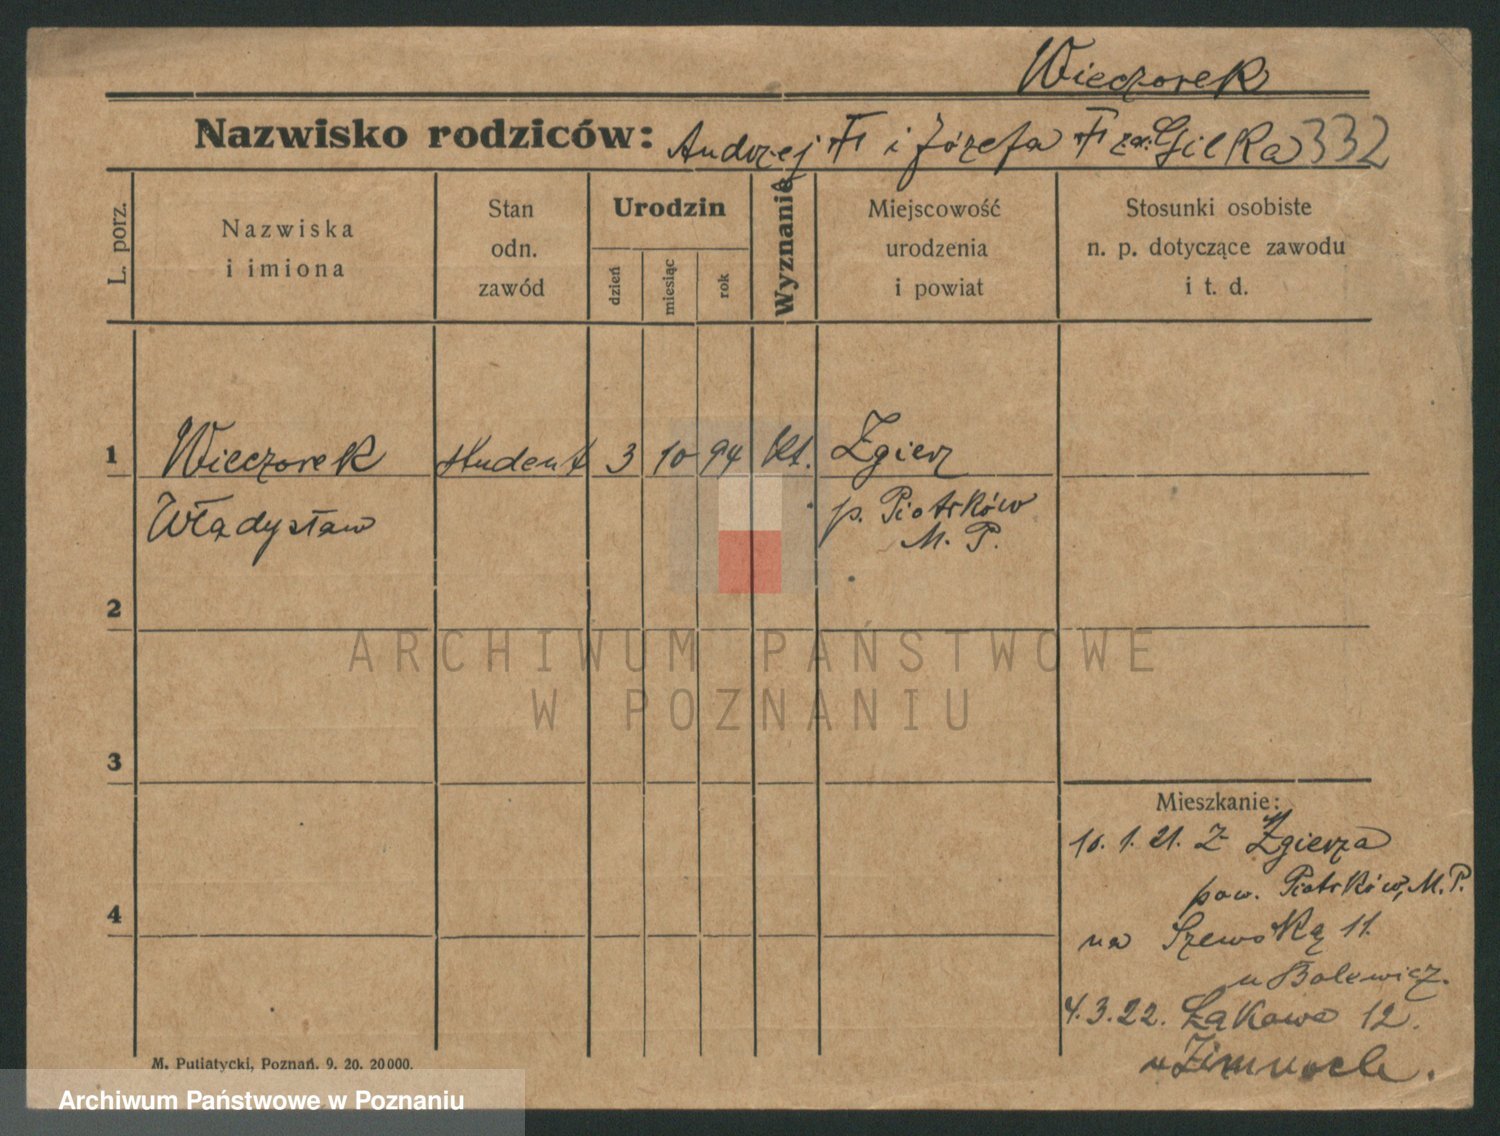 Wieczorek
Nazwisko rodziców: Andrzej i Józefa Gilka 332
L. porz.
Nazwiska
i imiona
Stan
odn.
zawód
Urodzin
dzień
miesiąc
rok
Wyznanie
Miejscowość
urodzenia
i powiat
Stosunki osobiste
n. p. dotyczące zawodu
i t. d.
1 Wieczorek student 3 10 94 kt. Zgierz
Władysław p. Piotrków
M. P.
2
ARCHIWUM PAŃSTWOWE
W POZNANIU
3
Mieszkanie:
10. 1. 21. z Zgierza
pow. Piotrków, M. P.
4
na Szewską 11.
u Balewicz.
4. 3. 22. Łąkowa 12.
u
M. Putiatycki, Poznań. 9. 20. 20000.
Archiwum Państwowe w Poznaniu